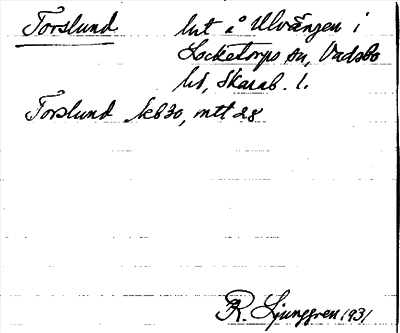 Torslund hmt å Ulvängen i
Locketorps sn, Vadsbo
hd, Skarab. l.
Torslund kb30, mtt 28
R. Ljunggren 1931